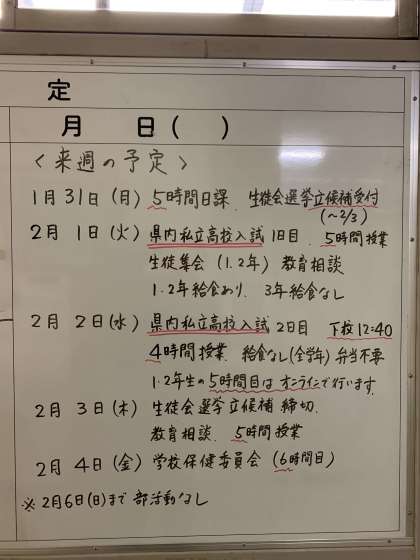 定
月 日( )
<来週の予定>
1月31日(月) 5時間日課. 生徒会選挙立候補受付
(〜2/3)
2月 1日(火) 県内私立高校入試 1日目. 5時間授業
生徒集会 (1.2年) 教育相談
1.2年給食あり. 3年給食なし
2月 2日(水) 県内私立高校入試 2日目 下校12:40
4時間授業. 給食なし(全学年) 弁当不要
1.2年生の5時間目はオンラインで行います.
2月 3日(木) 生徒会選挙立候補 締切.
教育相談. 5時間授業
2月 4日(金) 学校保健委員会 (6時間目)
※ 2月6日(日)まで 部活動なし